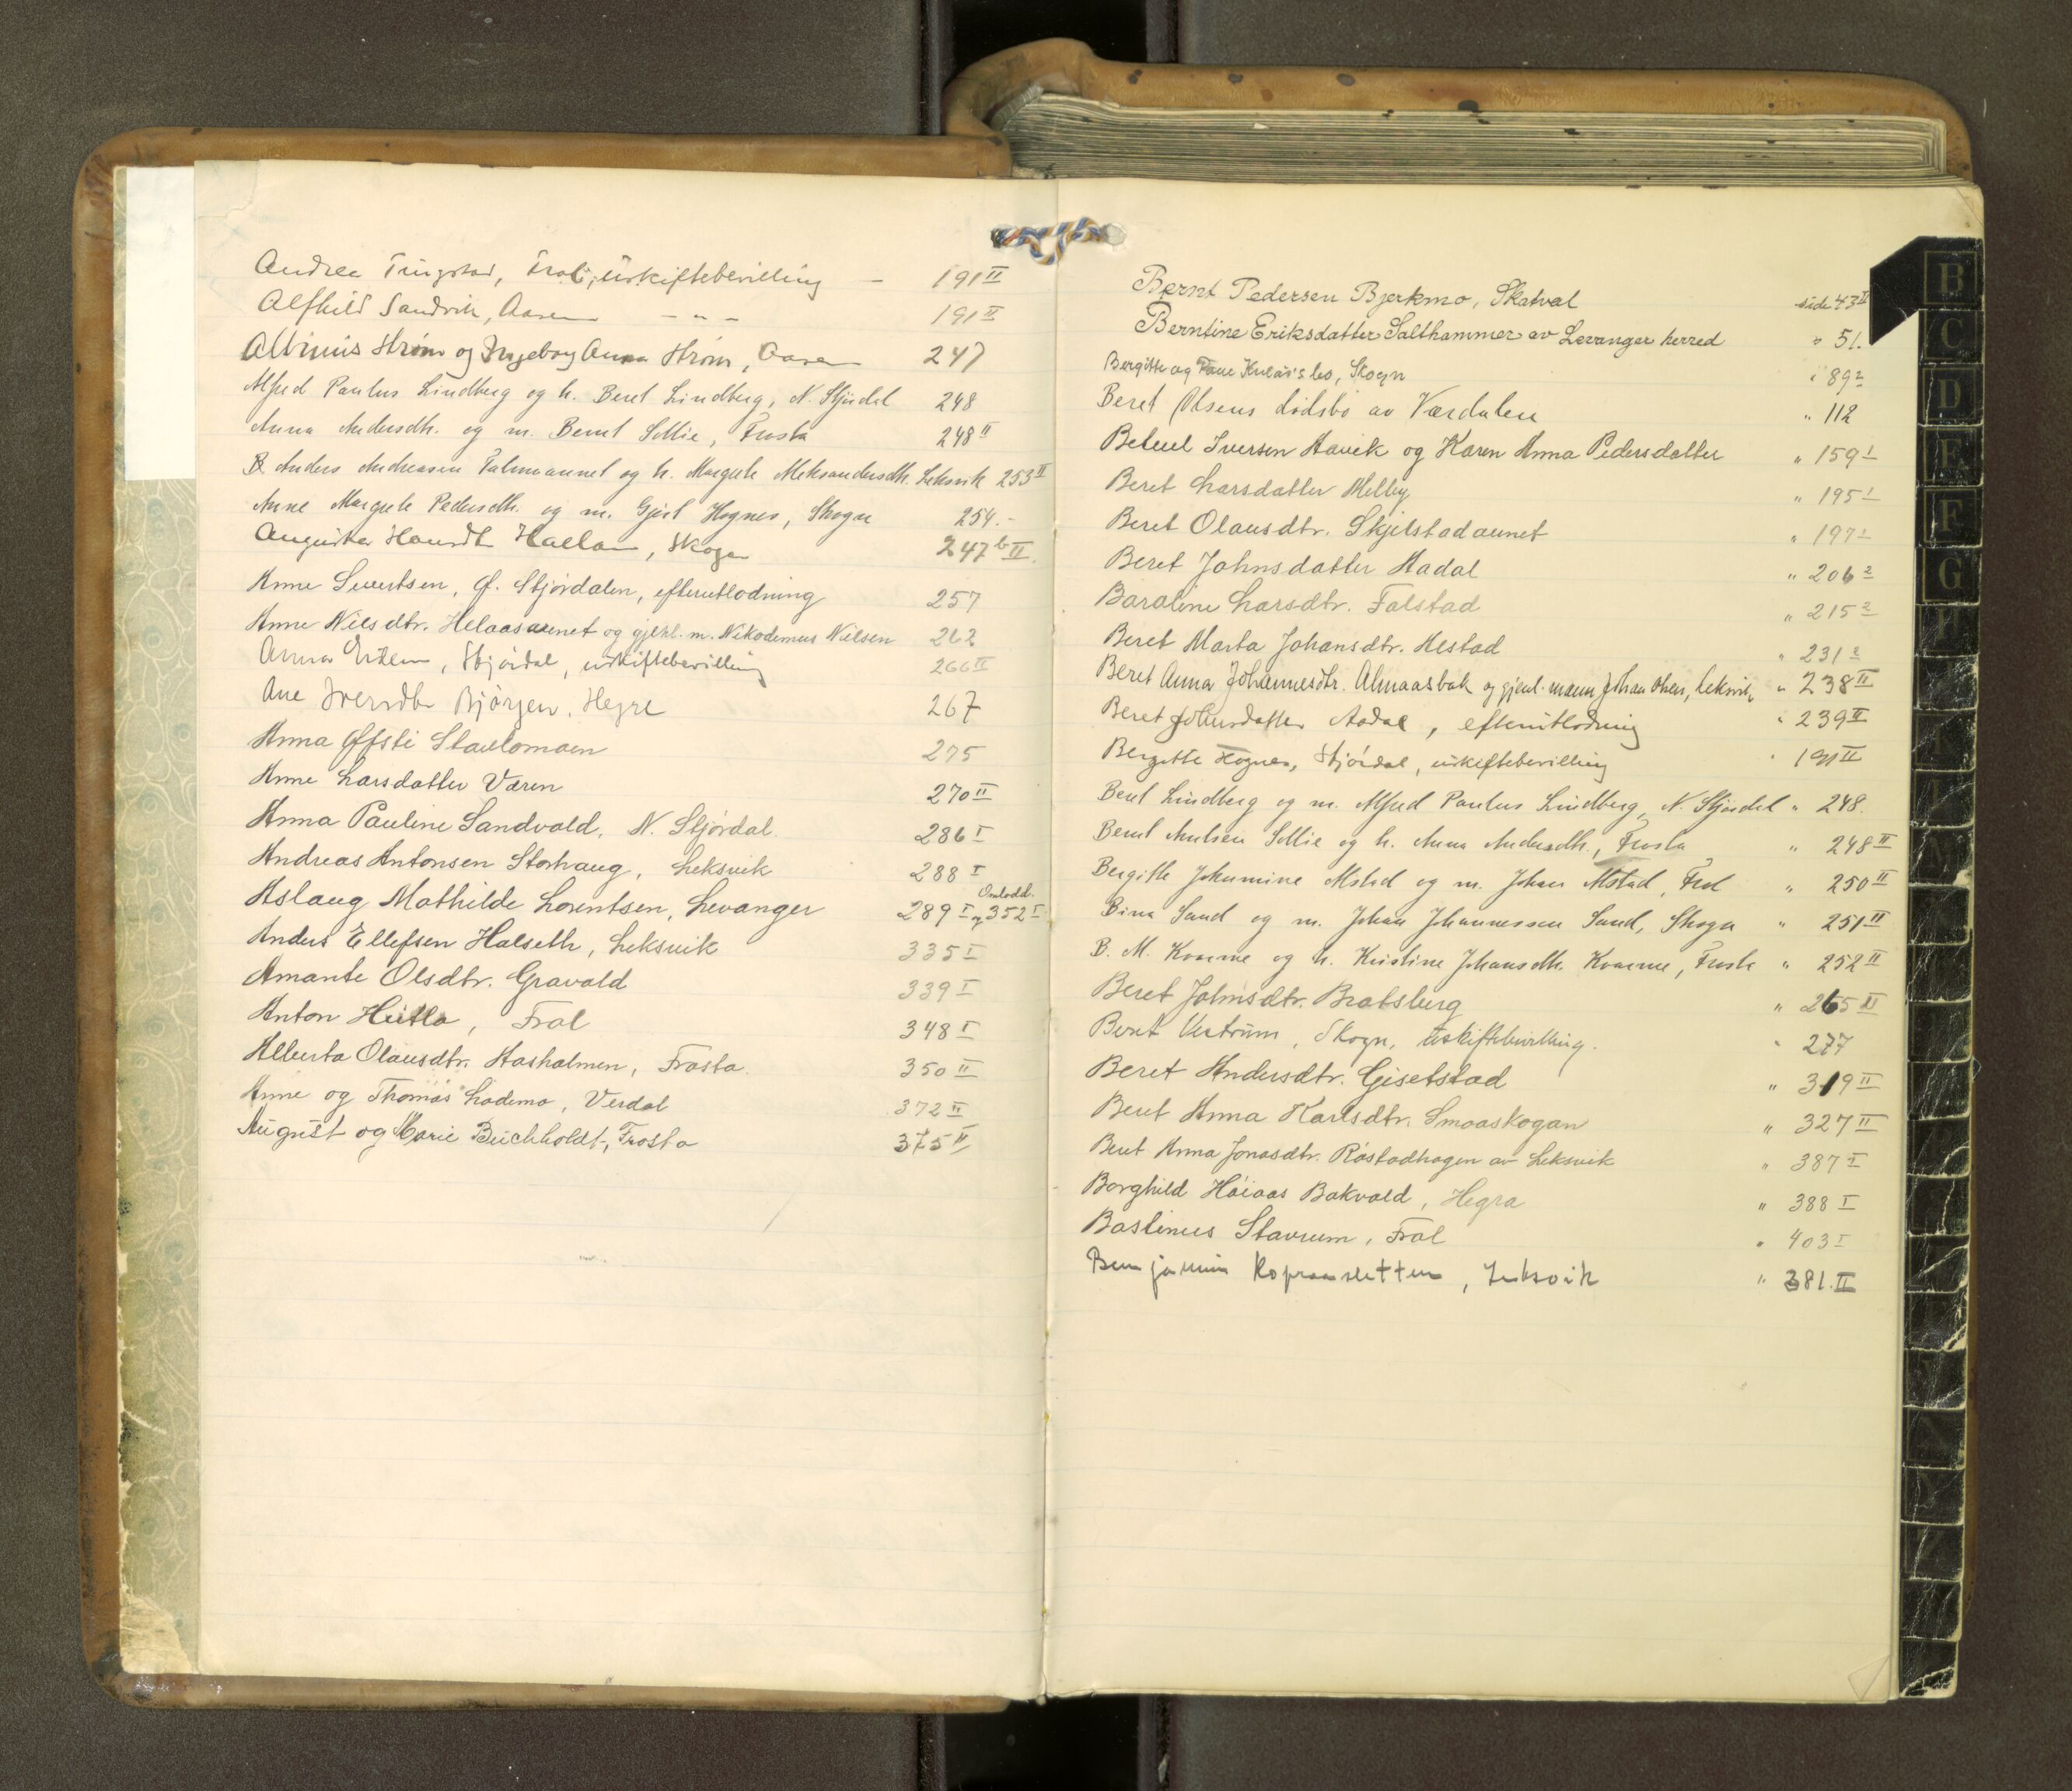 Andrea Tingstad, Frol, uskiftebevilling — 191 II
Alfhild Sandvik, Aasen — " — 191 II
Albinus Strøm og Ingeborg Anna Strøm, Aasen 247
Alfred Paulus Lindberg og h. Beret Lindberg, N. Stjördal 248
Anna Andersdtr. og m. Bernt Sellie, Frosta 248 II
Anders Andreasen Talmoaunet og h. Margrete Aleksandersdtr. Leksvik 253 II
Anne Margrete Pedersdtr. og m. Gjert Hognes, Skogn 254.-
Augusta Hansdtr Hallan, Skogn 247 b II.
Anne Sivertsen, Ø. Stjørdalen, efterutlodning 257
Anne Nilsdtr. Helaasaunet og gjenl. m. Nikodemus Nielsen 262
Anna Erdem, Stjórdal, uskiftebevilling 266 II
Ane Iversdtr Bjørgen, Hegre 267
Anna Øfsti Staulomoen 275
Anne Larsdatter Væren 270 II
Anna Pauline Sandvold, N. Stjørdal. 286 I
Andreas Antonsen Storhaug, Leksvik 288 I
Omlodd.
Aslaug Mathilde Lorentsen, Levanger 289 I og 352 I
Anders Ellefsen Halseth, Leksvik 335 I
Amante Olsdtr. Gravold 339 I
Anton Heitlo, Frol 348 I
Alberta Olausdtr. Hasholmen, Frosta. 350 II
Anne og Thomas Lademo, Verdal 372 II
August og Marie Buchholdt, Frosta 375 II
Bernt Pedersen Bjerkmo, Skatval side 43 II
Berntine Eriksdatter Salthammer av Levanger herred " 51.
Bergitte og Kulås's bo, Skogn " 89 2
Beret Olsens dødsbo av Værdalen " 112
Betuel Iversen Aavik og Karen Anna Pedersdatter " 159 1
Beret Larsdatter Melby " 195 1
Beret Olausdtr. Skjelstadaunet " 197 1
Beret Johnsdatter Aadal " 206 2
Baroline Larsdtr. Falstad " 215 2
Beret Marta Johansdtr. Mestad " 231 2
Beret Anna Johannesdtr. Almaasbak og gjenl. mann Johan Olsen, Leksvik " 238 II
Beret Johnsdatter Aadal, efterutlodning " 239 II
Bergitte Hognes, Stjórdal, uskiftebevilling " 191 II
Beret Lindberg og m. Alfred Paulus Lindberg, N. Stjørdal " 248.
Bernt Sellie og h. Anna Andersdtr., Frosta " 248 II
Bergitte Johannine Alstad og m. Johan Alstad, Frol " 250 II
Bina Sand og m. Johan Johannessen Sand, Skogn " 251 II
B. M. Kvarme og h. Kristine Johansdtr. Kvarme, Frosta " 252 II
Beret Johnsdtr. Bratsberg " 265 II
Beret Vestrum, Skogn, uskiftebevilling. " 277
Beret Andersdtr. Gisetstad " 319 II
Beret Anna Karlsdtr. Smaaskogan " 327 II
Beret Anna Jonasdtr. Råstadhagen av Leksvik " 387 I
Borghild Høiaas Bakvold, Hegra " 388 I
Bastinus Stavrum, Frol " 403 I
Benjamin Kopraasletten, Leksvik " 381. II
B
C
D
E
F
G